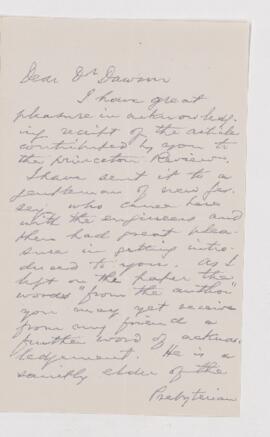 Dear Dr Dawson
I have great
pleasure in acknowledg-
ing receipt of the article
contributed by you to
the princeton Review.
I have sent it to a
gentleman of new Jer-
sey who came here
with the engineers and
then had great plea-
sure in getting intro-
duced to you. As I
left on the paper the
words "from the author"
you may yet receive
from my friend a
further word of acknow-
ledgement. He is a
saintly elder of the
Presbyterian